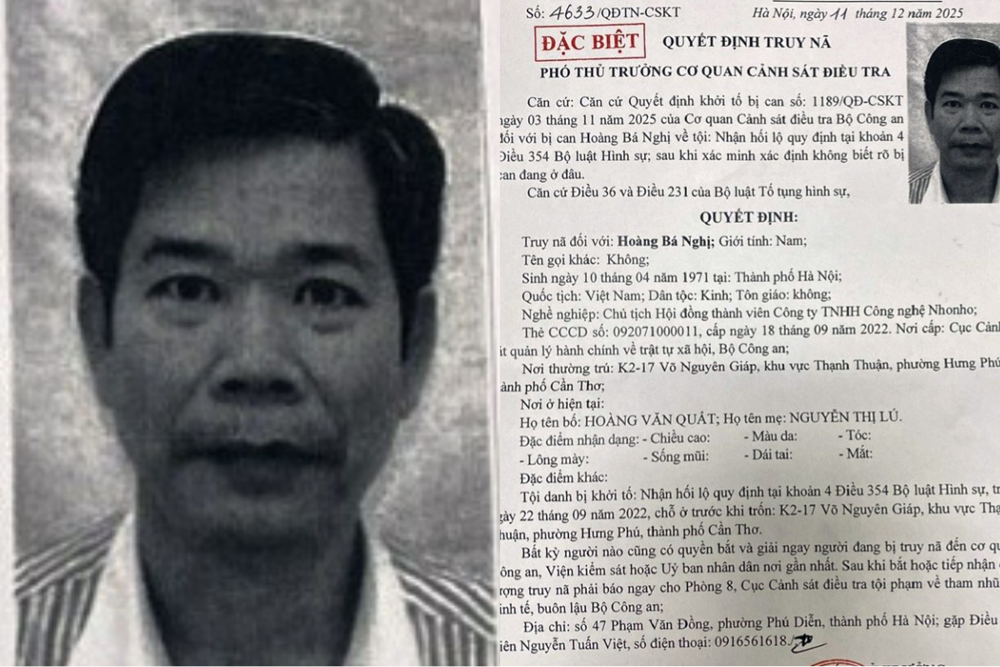 Số: 4633/QĐTN-CSKT
Hà Nội, ngày 11 tháng 12 năm 2025
ĐẶC BIỆT
QUYẾT ĐỊNH TRUY NÃ
PHÓ THỦ TRƯỞNG CƠ QUAN CẢNH SÁT ĐIỀU TRA
Căn cứ: Căn cứ Quyết định khởi tố bị can số: 1189/QĐ-CSKT
ngày 03 tháng 11 năm 2025 của Cơ quan Cảnh sát điều tra Bộ Công an
đối với bị can Hoàng Bá Nghị về tội: Nhận hối lộ quy định tại khoản 4
Điều 354 Bộ luật Hình sự; sau khi xác minh xác định không biết rõ bị
can đang ở đâu.
Căn cứ Điều 36 và Điều 231 của Bộ luật Tố tụng hình sự,
QUYẾT ĐỊNH:
Truy nã đối với: Hoàng Bá Nghị; Giới tính: Nam;
Tên gọi khác: Không;
Sinh ngày 10 tháng 04 năm 1971 tại: Thành phố Hà Nội;
Quốc tịch: Việt Nam; Dân tộc: Kinh; Tôn giáo: không;
Nghề nghiệp: Chủ tịch Hội đồng thành viên Công ty TNHH Công nghệ Nhonho;
Thẻ CCCD số: 092071000011, cấp ngày 18 tháng 09 năm 2022. Nơi cấp: Cục Cảnh
át quản lý hành chính về trật tự xã hội, Bộ Công an;
Nơi thường trú: K2-17 Võ Nguyên Giáp, khu vực Thạnh Thuận, phường Hưng Phú
ành phố Cần Thơ;
Nơi ở hiện tại:
Họ tên bố: HOÀNG VĂN QUÁT; Họ tên mẹ: NGUYỄN THỊ LÚ.
Đặc điểm nhận dạng: - Chiều cao: - Màu da: - Tóc:
- Lông mày: - Sống mũi: - Dái tai: - Mắt:
Đặc điểm khác:
Tội danh bị khởi tố: Nhận hối lộ quy định tại khoản 4 Điều 354 Bộ luật Hình sự, tr
gày 22 tháng 09 năm 2022, chỗ ở trước khi trốn: K2-17 Võ Nguyên Giáp, khu vực Thạ
huận, phường Hưng Phú, thành phố Cần Thơ.
Bất kỳ người nào cũng có quyền bắt và giải ngay người đang bị truy nã đến cơ qu
ông an, Viện kiểm sát hoặc Uỷ ban nhân dân nơi gần nhất. Sau khi bắt hoặc tiếp nhận
ượng truy nã phải báo ngay cho Phòng 8, Cục Cảnh sát điều tra tội phạm về tham nhũ
inh tế, buôn lậu Bộ Công an;
Địa chỉ: số 47 Phạm Văn Đồng, phường Phú Diễn, thành phố Hà Nội; gặp Điều
iên Nguyễn Tuấn Việt, số điện thoại: 0916561618./.